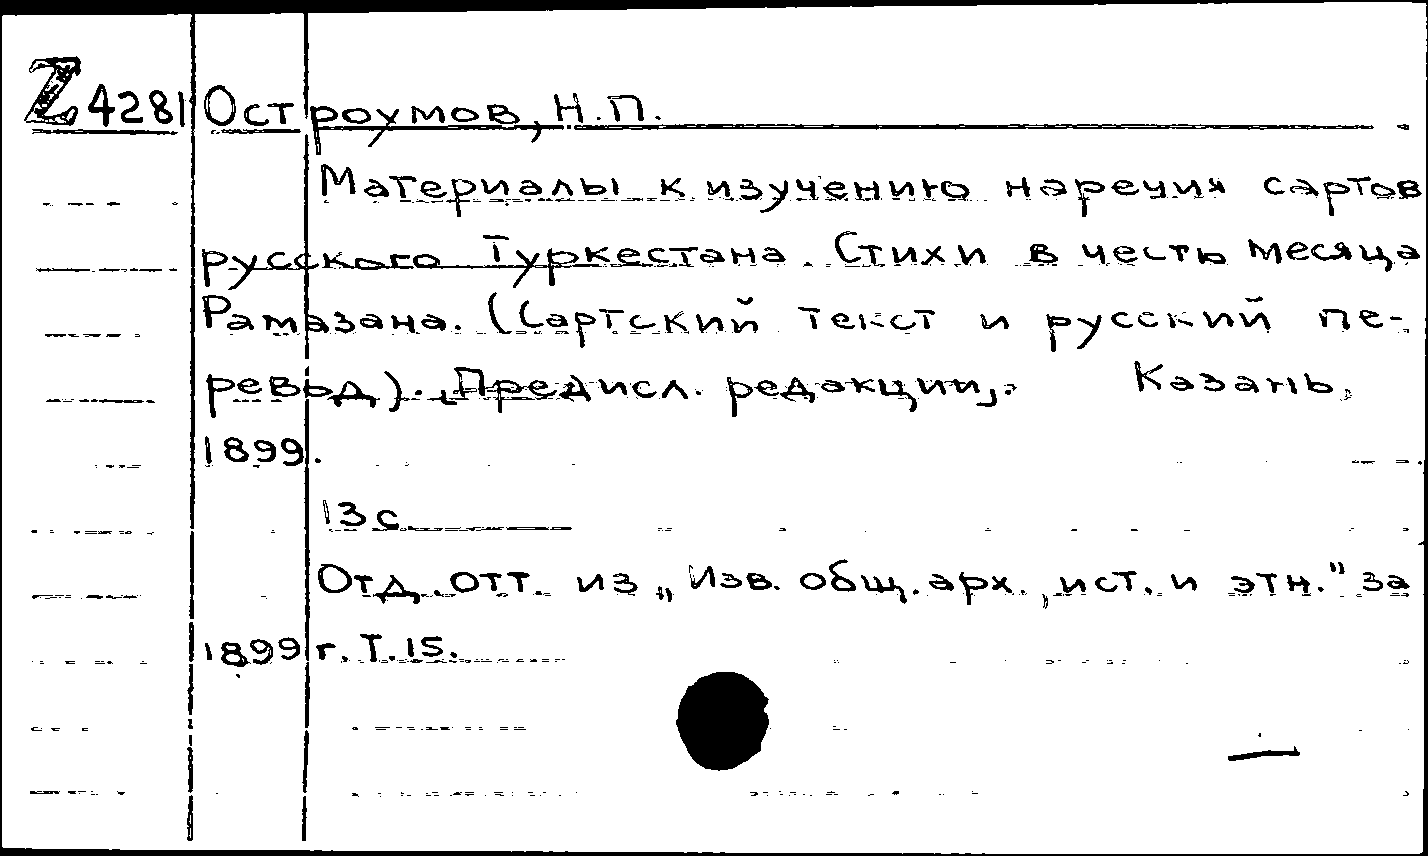 Z4281 Остроумов, Н.П.
Материалы к изучению наречия сартов
русского Туркестана. Стихи в честь месяца
Рамазана. (Сартский текст и русский пе-
ревод). [Предисл. редакции]. Казань,
1899.
13 с.
Отд. отт. из „Изв. общ. арх., ист. и этн." за
1899 г. Т. 15.